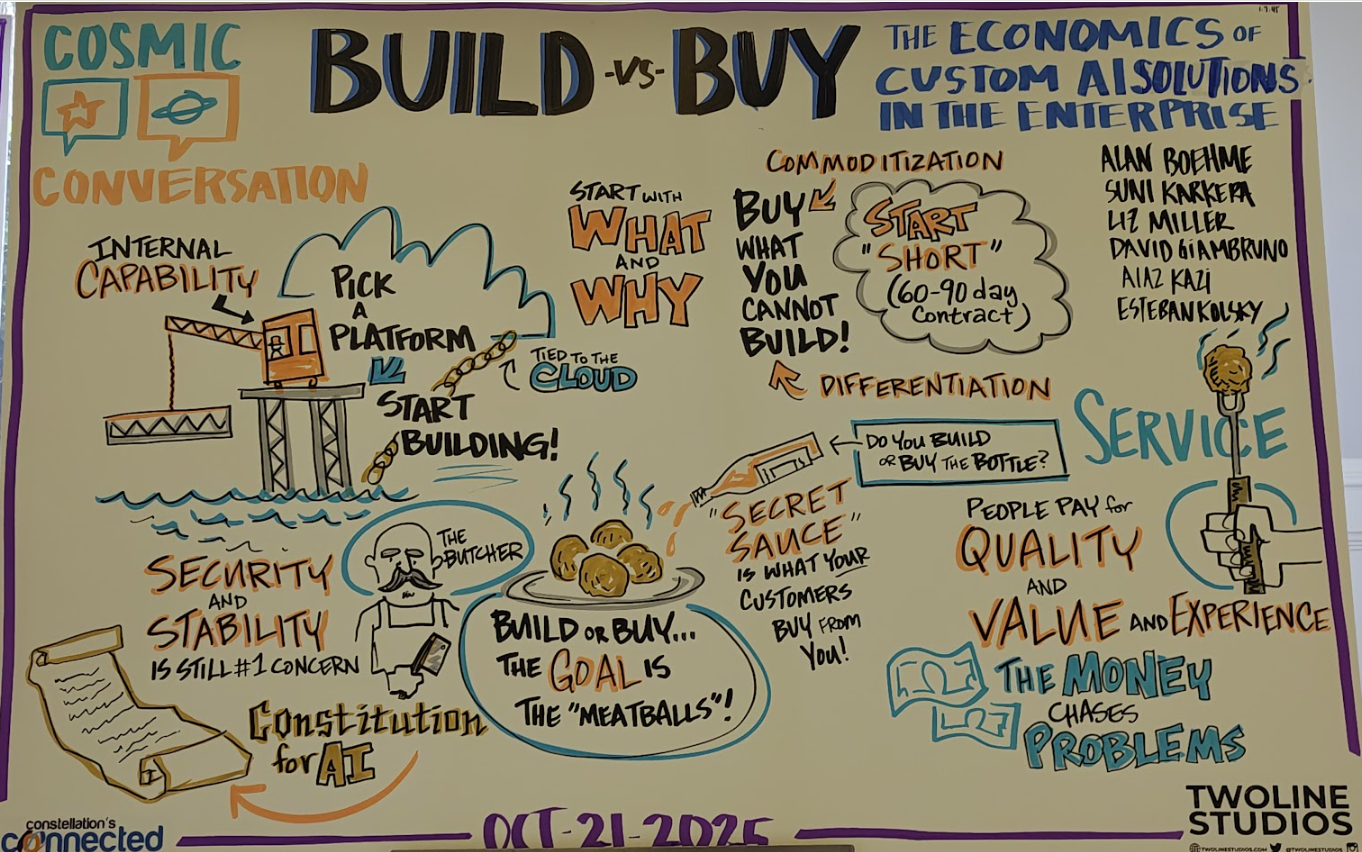 COSMIC
CONVERSATION
BUILD -VS- BUY
THE ECONOMICS OF
CUSTOM AI SOLUTIONS
IN THE ENTERPRISE
ALAN BOEHME
SUNI KARKERA
LIZ MILLER
DAVID GIAMBRUNO
AIAZ KAZI
ESTEBAN KOLSKY
INTERNAL
CAPABILITY
PICK
A
PLATFORM
START
BUILDING!
TIED TO THE
CLOUD
START WITH
WHAT
AND
WHY
COMMODITIZATION
BUY
WHAT
YOU
CANNOT
BUILD!
START
"SHORT"
(60-90 day
Contract)
DIFFERENTIATION
DO YOU BUILD
OR BUY THE BOTTLE?
"SECRET
SAUCE"
IS WHAT YOUR
CUSTOMERS
BUY FROM
YOU!
SERVICE
PEOPLE PAY for
QUALITY
AND
VALUE AND EXPERIENCE
THE MONEY
CHASES
PROBLEMS
SECURITY
AND
STABILITY
IS STILL #1 CONCERN
THE
BUTCHER
BUILD OR BUY...
THE GOAL IS
THE "MEATBALLS"!
Constitution
for AI
constellation's
connected
OCT-21-2025
TWOLINE
STUDIOS
TWOLINESTUDIOS.COM @TWOLINESTUDIOS